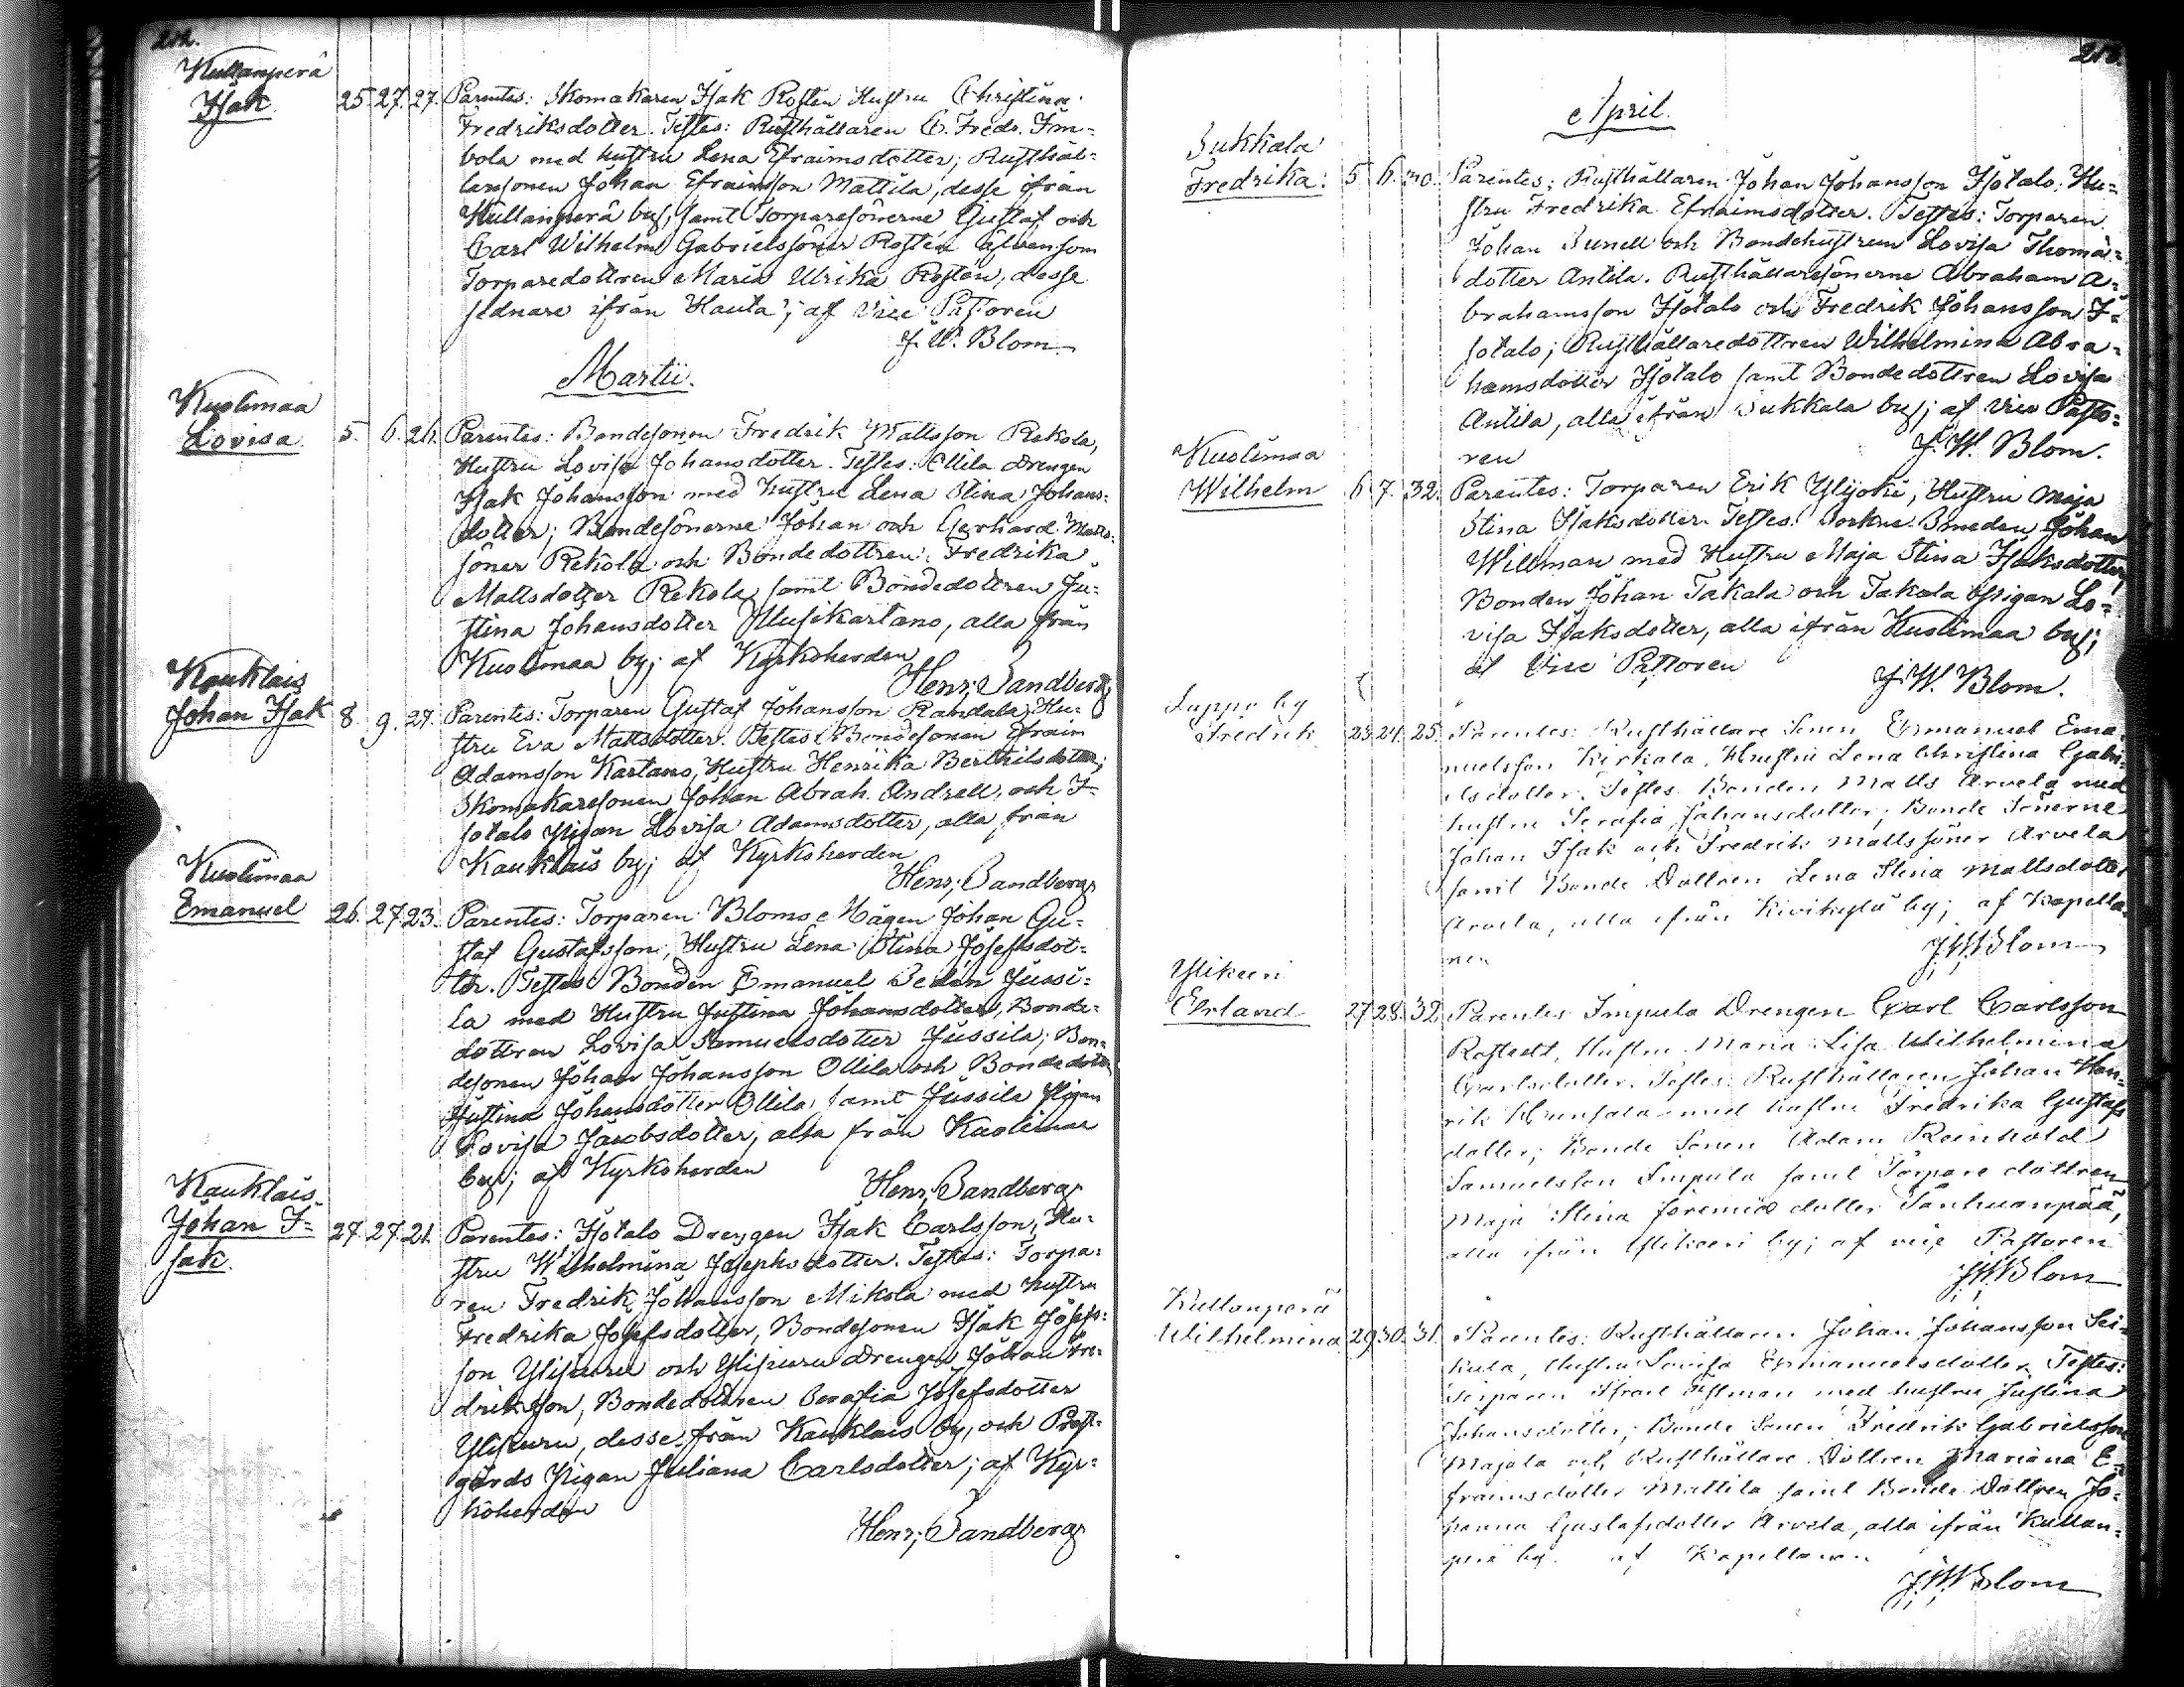 212.
Kullanperä
Isak 25. 27. 27. Parentes: Skomakaren Isak Rosten Hustru Christina
Fredriksdotter. Testes: Rusthållaren C. Fredr. Im=
bola med hustru Lena Efraimsdotter; Rusthål=
laresonen Johan Efraimsson Mattila, desse ifrån
Kullanperä by, samt Torparesönerne Gustaf och
Carl Wilhelm Gabrielssöner Rostén äfvensom
Torparedottren Maria Ulrika Rostén, desse
sednare ifrån Hauta; af Vice Pastoren
J. W. Blom
Martii.
Kuolimaa
Lovisa 5. 6. 26. Parentes: Bondesonen Fredrik Mattsson Rekola,
Hustru Lovisa Johansdotter. Testes: Ollila Drengen
Isak Johansson med hustru Lena Stina Johans=
dotter; Bondesönerne Johan och Gerhard Matts=
söner Rekola och Bondedottren Fredrika
Mattsdotter Rekola, samt Bondedottren Ju=
stina Johansdotter Uusikartano, alla från
Kuolimaa by; af Kyrkoherden
Henr. Sandberg
Kauklais
Johan Isak 8. 9. 27. Parentes: Torparen Gustaf Johansson Randala, Hu=
stru Eva Mattsdotter. Testes: Bondesonen Efraim
Adamsson Kartano, Hustru Henrika Berthilsdotter;
Skomakaresonen Johan Abrah. Andrell, och I=
sotalo Pigan Lovisa Adamsdotter, alla från
Kauklais by; af Kyrkoherden
Henr. Sandberg
Kuolimaa
Emanuel 26. 27. 23. Parentes: Torparen Bloms Mågen Johan Gu=
staf Gustafsson, Hustru Lena Stina Josefsdot=
ter. Testes: Bonden Emanuel Sedén Jussi=
la med Hustru Justina Johansdotter, Bonde=
dottren Lovisa Samuelsdotter Jussila; Bon=
desonen Johan Johansson Ollila och Bondedottren
Justina Johansdotter Ollila, samt Jussila Pigan
Lovisa Jacobsdotter, alla från Kuolimaa
by; af Kyrkoherden
Henr. Sandberg
Kauklais
Johan I=
sak. 27. 27. 21. Parentes: Isotalo Drengen Isak Carlsson, Hu=
stru Wilhelmina Josephsdotter. Testes: Torpa=
ren Fredrik Johansson Mikola med hustru
Fredrika Josefsdotter, Bondesonen Isak Josefs=
son Ylipuru och Ylipuru Drengen Johan Fre=
driksson, Bondedottren Serafia Josefsdotter
Ylipuru, desse från Kauklais by, och Prest=
gårds Pigan Juliana Carlsdotter; af Kyr=
koherden
Henr. Sandberg
213.
April.
Sukkala
Fredrika: 5. 6. 30. Parentes: Rusthållaren Johan Johansson Isotalo, Hu=
stru Fredrika Efraimsdotter. Testes: Torparen
Johan Sunell och Bondehustrun Lovisa Thomas=
dotter Antila. Rusthållaresönerne Abraham A=
brahamsson Isotalo och Fredrik Johansson I=
sotalo; Rusthållaredottren Wilhelmina Abra=
hamsdotter Isotalo samt Bondedottren Lovisa
Antila, alla ifrån Sukkala by; af Vice Pasto=
ren
J. W. Blom.
Kuolimaa
Wilhelm 6. 7. 32. Parentes: Torparen Erik Ylijoki, Hustru Maja
Stina Isaksdotter. Testes: Sockne Smeden Johan
Willman med Hustru Maja Stina Isaksdotter,
Bonden Johan Takala och Takala Pigan Lo=
visa Isaksdotter, alla ifrån Kuolimaa by;
af Vice Pastoren
J. W. Blom.
Lappo by
Fredrik 23. 24. 25. Parentes: Rusthållare Sonen Emanuel Ema
nuelsson Kirkala, Hustru Lena Christina Gabri=
elsdotter. Testes: Bonden Matts Arvela med
hustru Serafia Johansdotter; Bonde Sönerne
Johan Isak och Fredrik Mattssöner Arvela
samt Bonde Dottren Lena Stina Mattsdotter
Arvela, alla ifrån Kivikylä by; af Kapella=
nen
J. W. Blom
Ylikeri
Erland 27. 28. 32. Parentes Impula Drengen Carl Carlsson
Rostedt, Hustru Maria Lisa Wilhelmina
Carlsdotter. Testes: Rusthållaren Johan Hen=
rik med hustru Fredrika Gustafs
dotter; Bonde Sonen Adam Reinhold
Samuelsson Impula samt Torpare dottren
Maja Stina Jeremiædotter Tanhuanpää,
alla ifrån Ylikeri by; af vice Pastoren
J. W. Blom
Kullanperä
Wilhelmina 29. 30. 31. Parentes: Rusthållaren Johan Johansson Sei=
kula, Hustru Lovisa Emanuelsdotter. Testes:
Torparen Israel med hustru Justina
Johansdotter; Bonde Sonen Fredrik Gabrielsson
Majala och Rusthållare Dottren Mariana E=
fraimsdotter Mattila samt Bonde Dottren Jo=
hanna Gustafsdotter Arvela, alla ifrån Kullan=
perä by. af Kapellanen
J. W. Blom